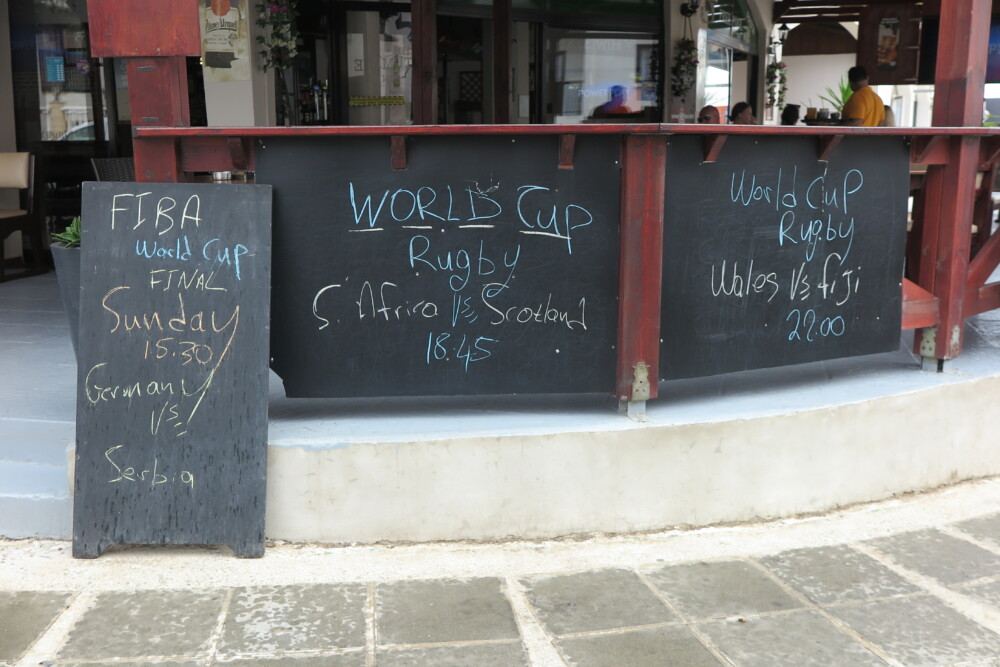 FIBA
World Cup
FINAL
Sunday
15.30
Germany
Vs
Serbia
WORLD Cup
Rugby
S. Africa Vs, Scotland
18.45
World Cup
Rugby
Wales Vs fiji
22.00